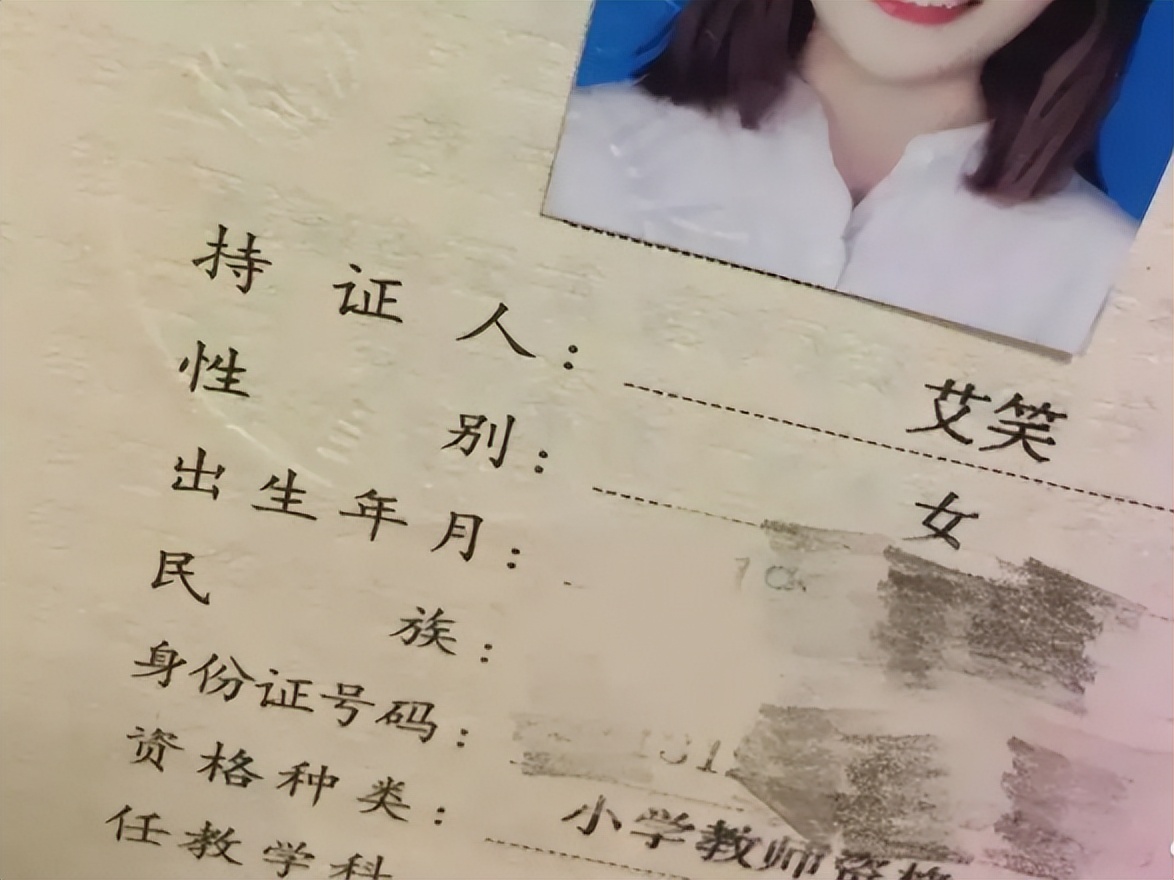 持证人：艾笑
性别：女
出生年月：
民族：
身份证号码：
资格种类：小学教师资格
任教学科